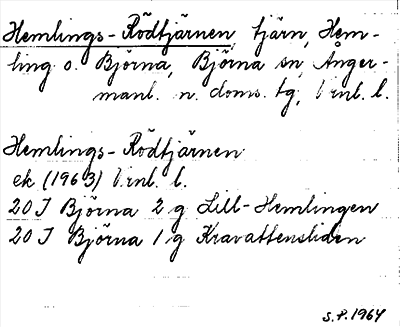 Hemlings-Rödtjärnen, tjärn, Hem-
ling o. Björna, Björna sn, Ånger-
manl. n. doms. tg, Vrnl. l.
Hemlings-Rödtjärnen
ek (1963) Vrnl. l.
20 I Björna 2 g Lill-Hemlingen
20 I Björna 1 g Kravattensliden
S.P. 1964